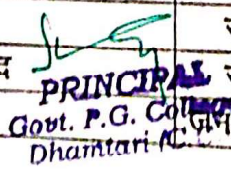 PRINCIPAL
Govt. P.G. College
Dhamtari (C.